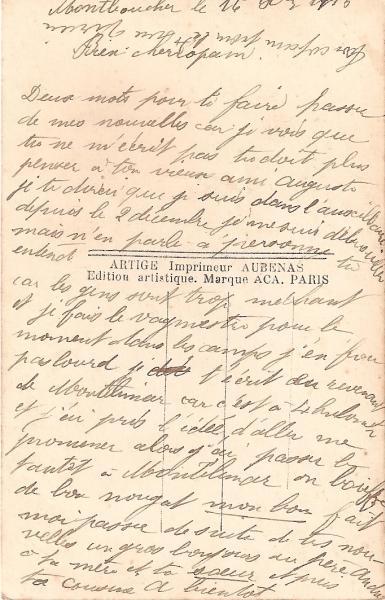 Montboucher le 16
ton copain pour la vie
Bien cher copain
Deux mots pour te faire passer
de mes nouvelles car je vois que
tu ne m'ecrit pas tu doit plus
penser à ton vieux ami Auguste
je te dirai que je suis dans l'auxiliaire
depuis le 2 decembre je me suis débrouiller
mais n'en parle a personne tu
entend
ARTIGE Imprimeur AUBENAS
Edition artistique. Marque ACA. PARIS
car les gens sont trop méchant
et je fais le vaguemestre pour le
moment dans les camps j'en
pas lourd je t'écrit du revenant
de Montélimar car c'est à 4 kilometr
et j'ai pris l'idée d'aller me
promener alors j'ai passer le
à Montélimar on bouffe
de bon nougat mon bon fait
moi passer de suite de tes nou
velles un gros bonjour au père André
à ta mère et ta soeur et puis
ta cousine A bientot